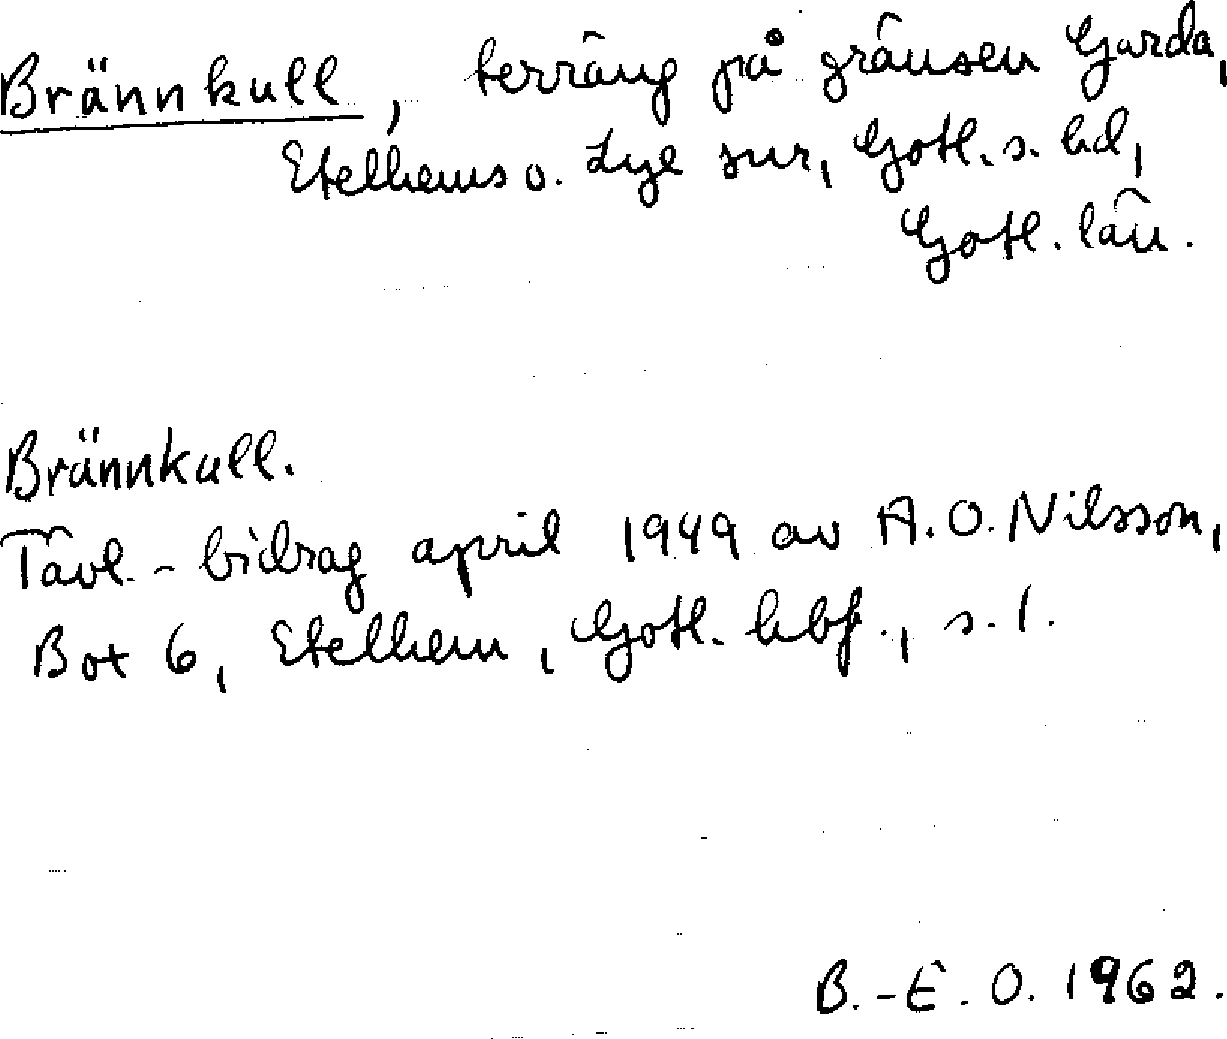 Brännkull, terräng på gränsen Garda,
Etelhems o. Lye snr, Gotl. s. hd,
Gotl. län.
Brännkull.
Tävl.-bidrag april 1949 av A. O. Nilsson,
Box 6, Etelhem, Gotl. hbf., s. 1.
B.-E. O. 1962.